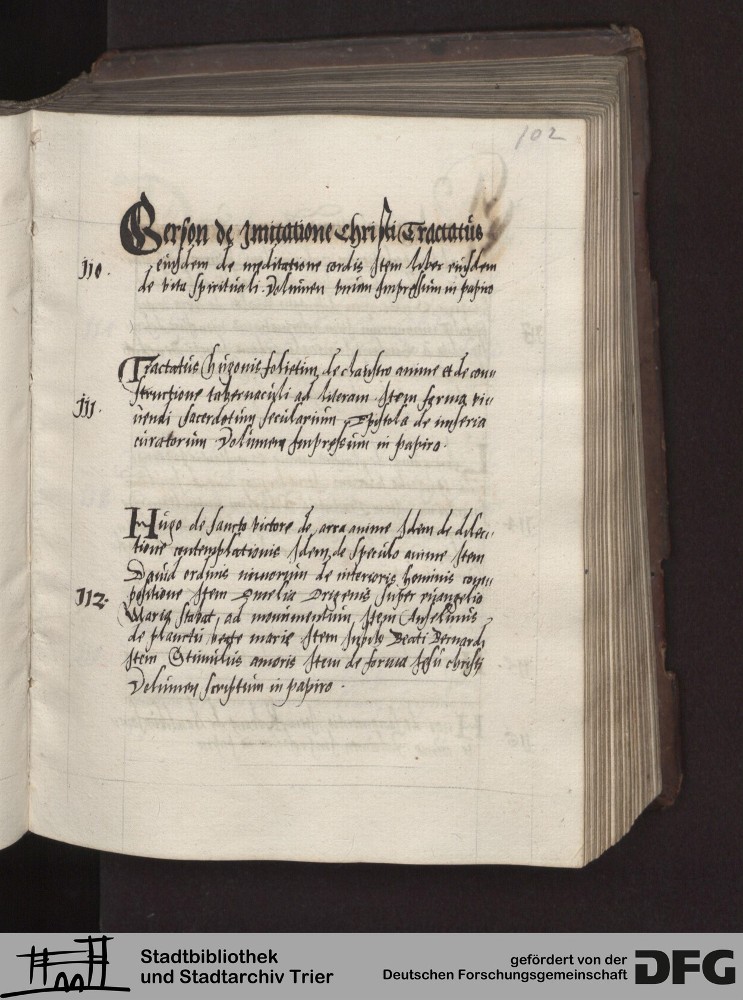 102
Gerson de Imitatione Christi Tractatus
110. eiusdem de meditatione cordis Item liber eiusdem
de vita spirituali. Volumen vnum Impressum in papiro
Tractatus Hugonis folietini de claustro anime et de con=
structione tabernaculi ad literam. Item forma vi=
111. uendi sacerdotum secularium Epistola de miseria
curatorum Volumen Impressum in papiro.
Hugo de sancto victore de arra anime Idem de dilec=
tione contemplationis Idem de speculo anime Item
Dauid ordinis minorum de interioris hominis com=
112. positione Item Omelia Origenis super euangelio
Maria stabat ad monumentum Item Anselmus
de planctu virginis marie Item Beati Bernardi
Item Stimulus amoris Item de forma Jesu christi
Volumen scriptum in papiro.
Stadtbibliothek
und Stadtarchiv Trier
gefördert von der
Deutschen Forschungsgemeinschaft
DFG